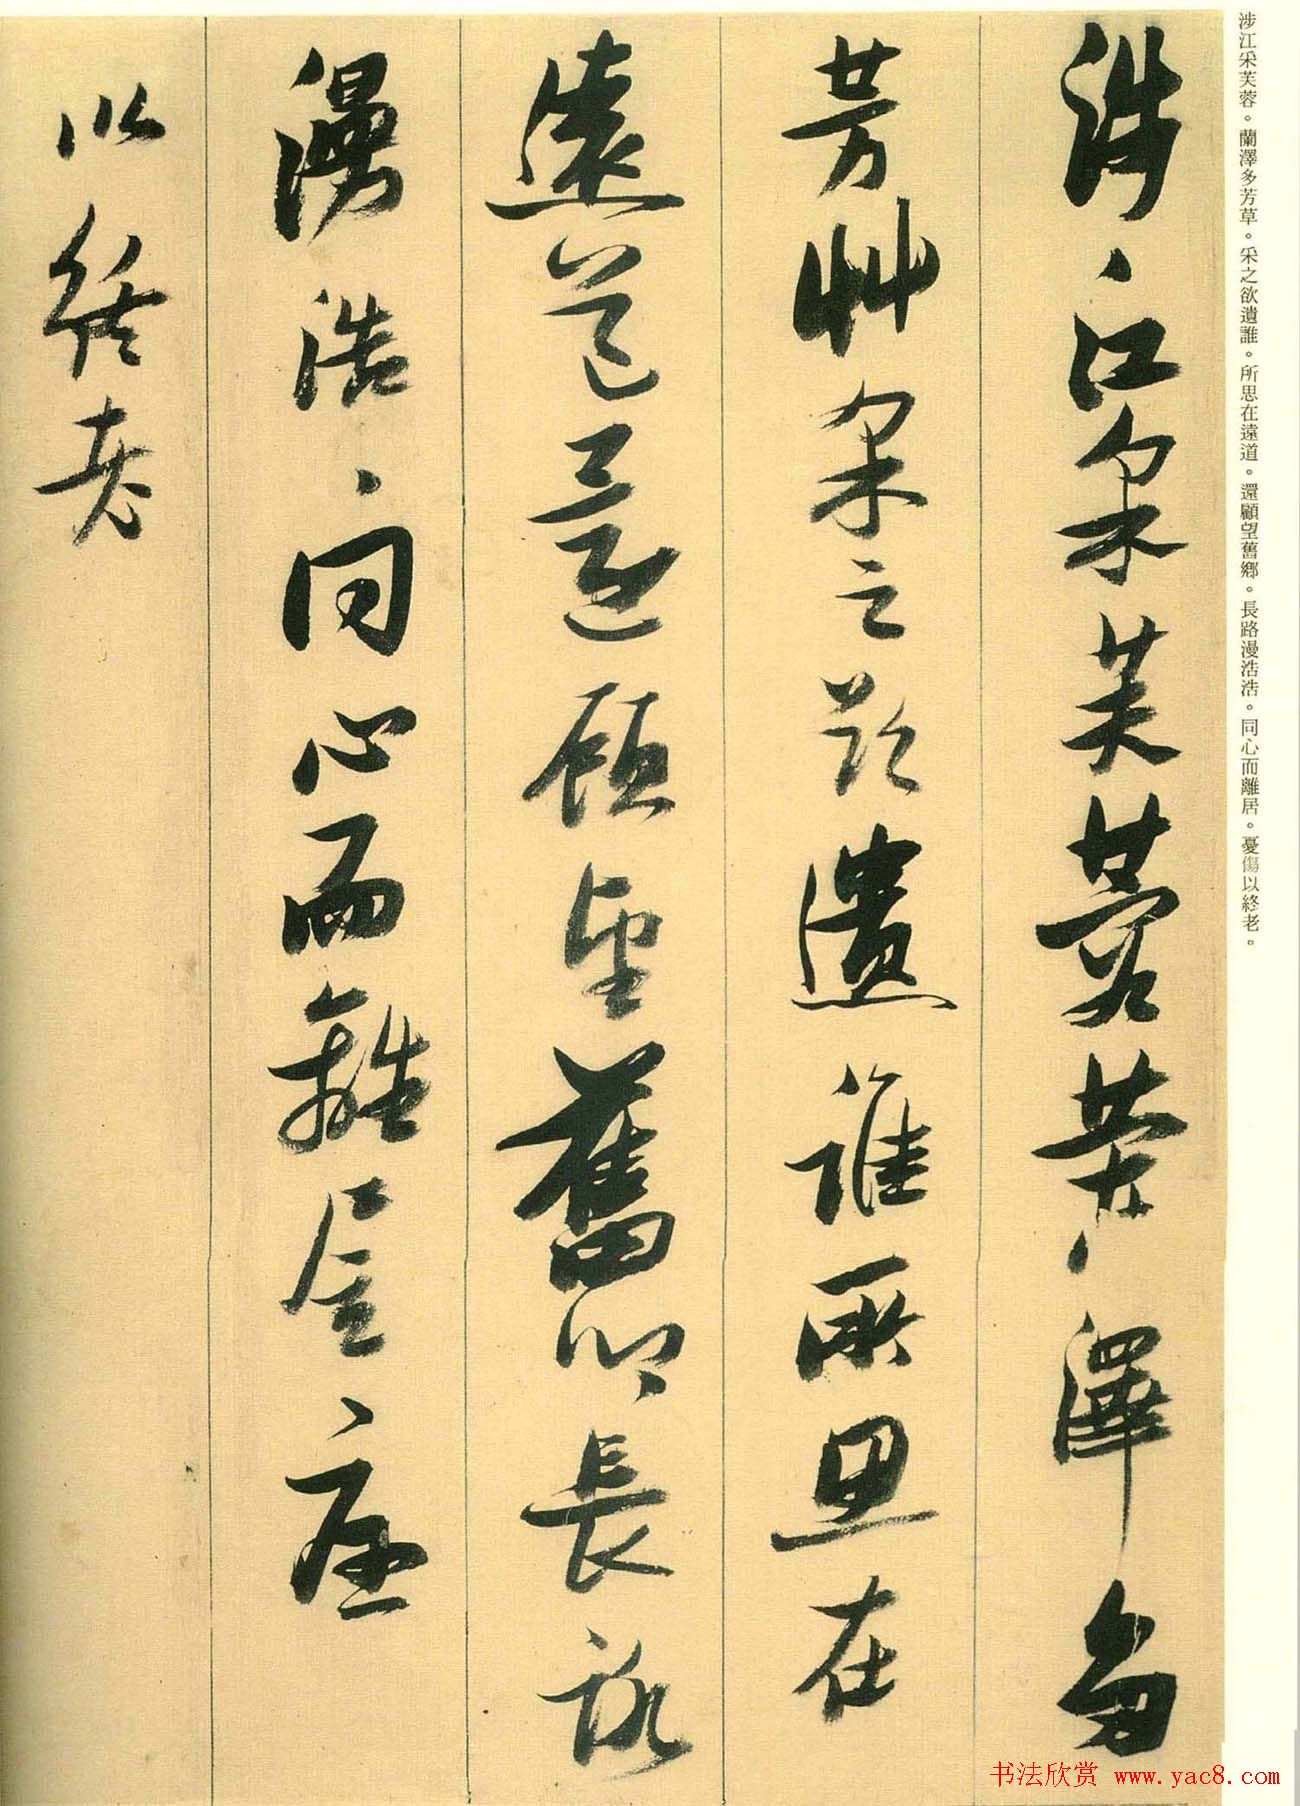 涉江采芙蓉。蘭澤多芳草。采之欲遺誰。所思在遠道。還顧望舊鄉。長路漫浩浩。同心而離居。憂傷以終老。
涉江采芙蓉蘭澤多
芳艸采之欲遺誰所思在
遠道還顧望舊鄉長路
漫浩、同心而離居憂
以終老
书法欣赏 www.yac8.com